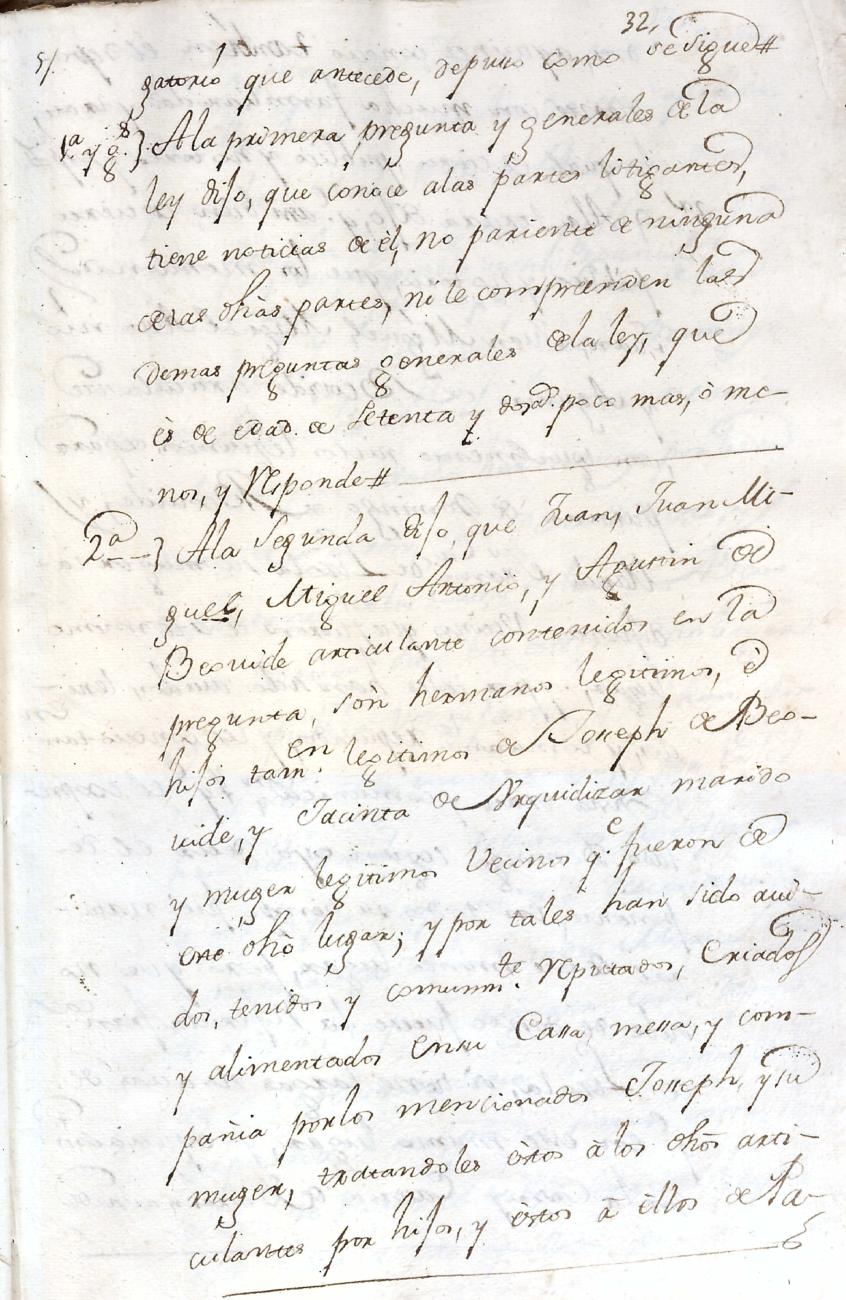 32,
gatorio que antecede, depuso como se sigue#
1ª y gs } Ala primera pregunta y generales de la
ley dijo, que conoce alas partes litigantes,
tiene noticias de èl, no pariente de ninguna
de las dhãs partes, ni le comprenden las
demas preguntas generales de la ley, que
ès de edad de setenta y dos ad. poco mas, ò me-
nos, y responde#
2ª } Ala segunda dijo, que Juan, Juan Mi-
guel, Miguel Antonio, y Agustin de
Beovide articulante contenidos en la
pregunta, sòn hermanos legitimos, è
hijos tamen. legitimos de Joseph de Beo-
vide, y Jacinta de Urquidizar marido
y muger legitimos vecinos q.e fueron de
este dhõ lugar; y por tales han sido avi-
dos, tenidos y comunm.te reputados, criados
y alimentados en su cassa, messa, y com-
pañia por los mencionados Joseph, y su
muger, tratandoles èstos à los dhõs arti-
culantes por hijos, y èstos à èllos de Pa-